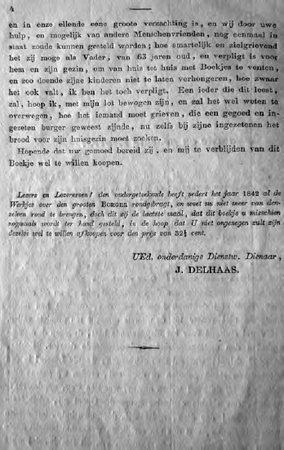 4
en in onze ellende eene groote verzachting is, en wij door uwe
hulp, en mogelijk van andere Menschenvrienden, nog eenmaal in
staat zonde kunnen gesteld worden; hoe smartelijk en zielgrievend
het zij moge als Vader, van 63 jaren oud, en verpligt is voor
hem en zijn gezin, om van huis tot huis met Boekjes te venten,
en zoo doende zijne kinderen niet te laten verhongeren, hoe zwaar
het ook valt, ik ben het toch verpligt. Een ieder die dit leest,
zal, hoop ik, met mijn lot bewogen zijn, en zal het wel weten te
overwegen, hoe het iemand moet grieven, die een gegoed en in-
gezeten burger geweest zijnde, nu zelfs bij zijne ingezetenen het
brood voor zijn huisgezin moet zoeken.
Hopende dat uw gemoed bereid zij, en mij te verblijden van dit
Boekje wel te willen koopen.
Lezers en Lezeressen! den ondergeteekende heeft sedert het jaar 1842 al de
Werkjes over den grooten BORGER rondgebragt, en weet nu niet meer van den-
zelven rond te brengen, doch dit zij de laatste maal, dat dit boekje u misschien
nogmaals wordt ter hand gesteld, in de hoop dat U niet ongenegen zult zijn
dezelve wel te willen afkoopen voor den prijs van 32½ cent.
UEd. onderdanige Dienstw. Dienaar,
J. DELHAAS.